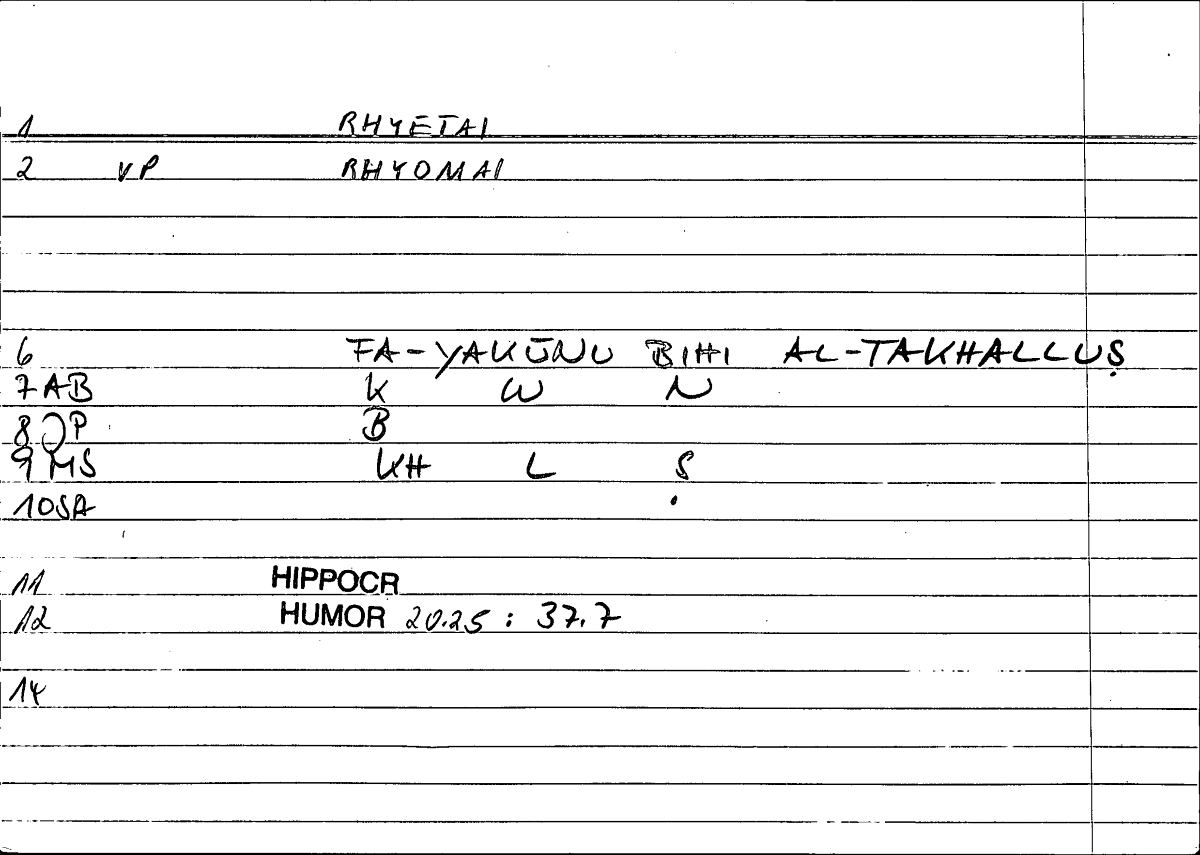 1 RHYETAI
2 VP RHYOMAI
6 FA-YAKŪNU BIHI AL-TAKHALLUṢ
7 AB K W N
8 QP B
9 MS KH L Ṣ
10 SA
11 HIPPOCR
12 HUMOR 20.25 : 37.7
14